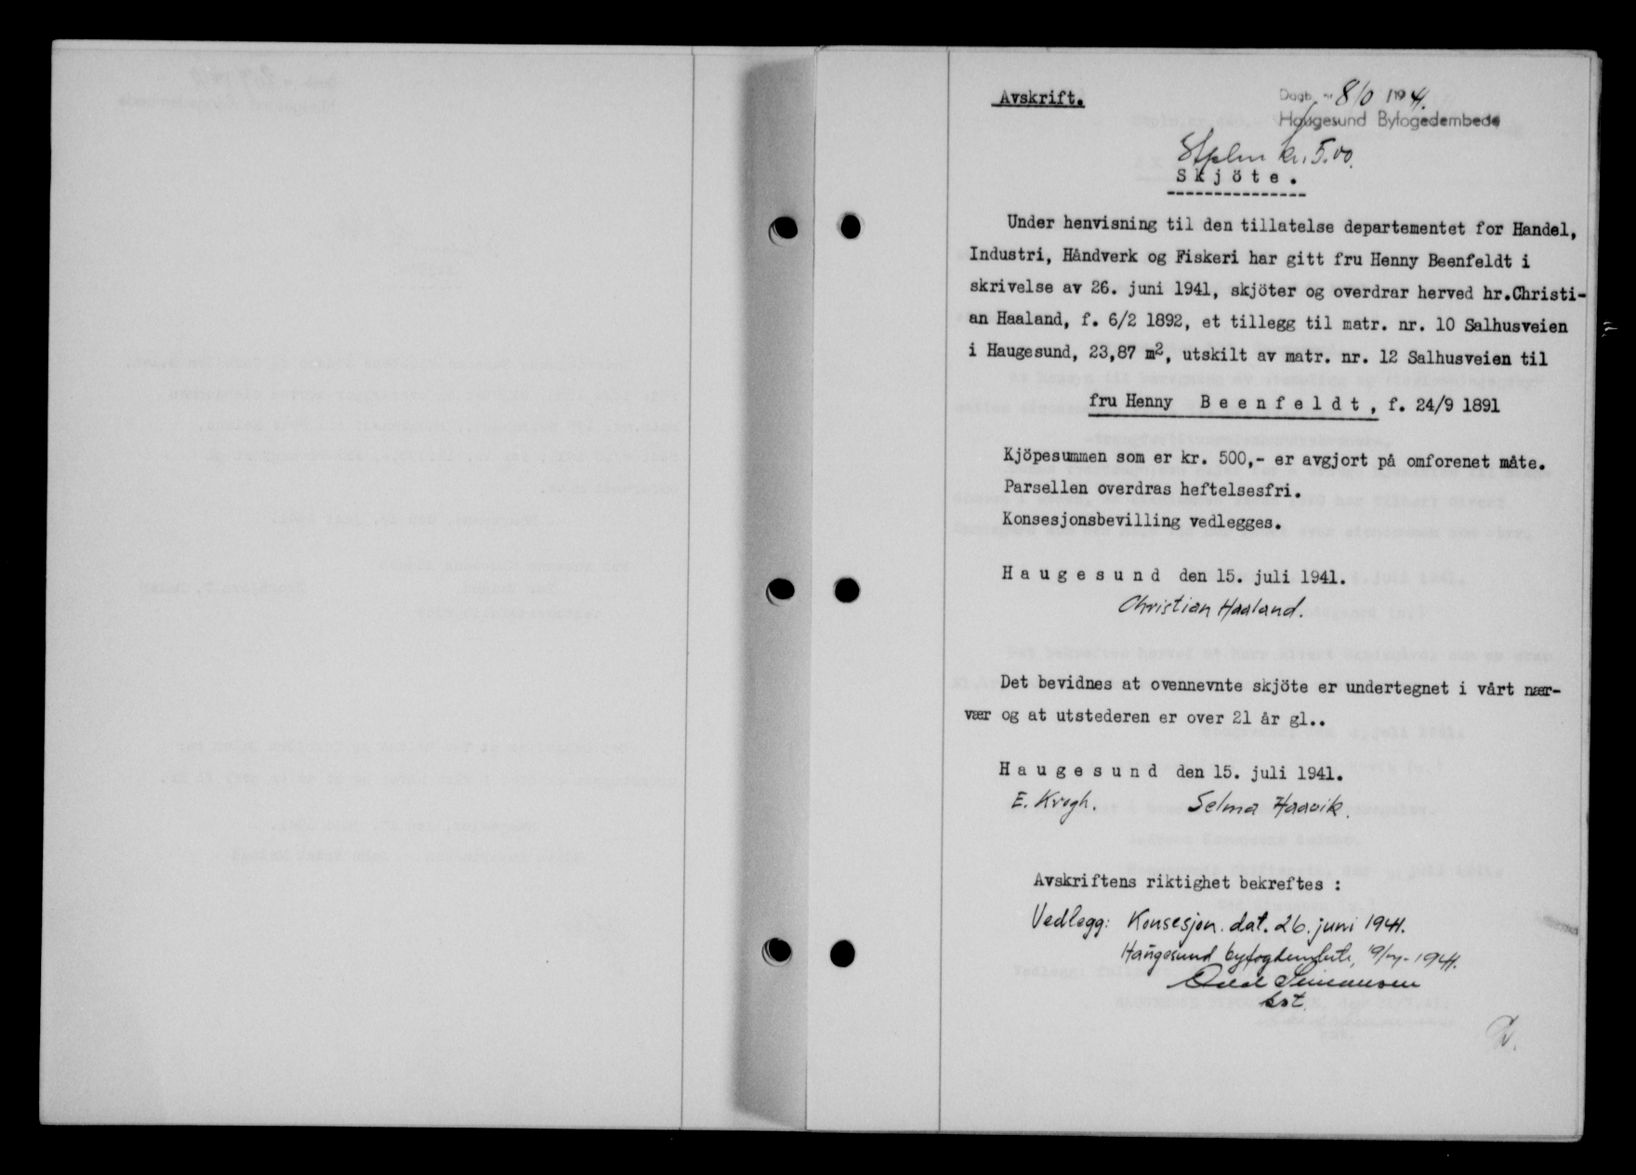 Avskrift.
Dagb. nr 810 1941.
Haugesund Byfogedembede
Stplm kr. 5.00.
Skjöte.
Under henvisning til den tillatelse departementet for Handel,
Industri, Håndverk og Fiskeri har gitt fru Henny Beenfeldt i
skrivelse av 26. juni 1941, skjöter og overdrar herved hr.Christi-
an Haaland, f. 6/2 1892, et tillegg til matr. nr. 10 Salhusveien
i Haugesund, 23,87 m², utskilt av matr. nr. 12 Salhusveien til
fru Henny Beenfeldt, f. 24/9 1891
Kjöpesummen som er kr. 500,- er avgjort på omforenet måte.
Parsellen overdras heftelsesfri.
Konsesjonsbevilling vedlegges.
Haugesund den 15. juli 1941.
Christian Haaland.
Det bevidnes at ovennevnte skjöte er undertegnet i vårt nær-
vær og at utstederen er over 21 år gl..
Haugesund den 15. juli 1941.
E. Krogh. Selma Haavik.
Avskriftens riktighet bekreftes :
Vedlegg: Konsesjon. dat. 26. juni 1941.
Haugesund byfogdembete, 19/7-1941.
Odd Simonsen